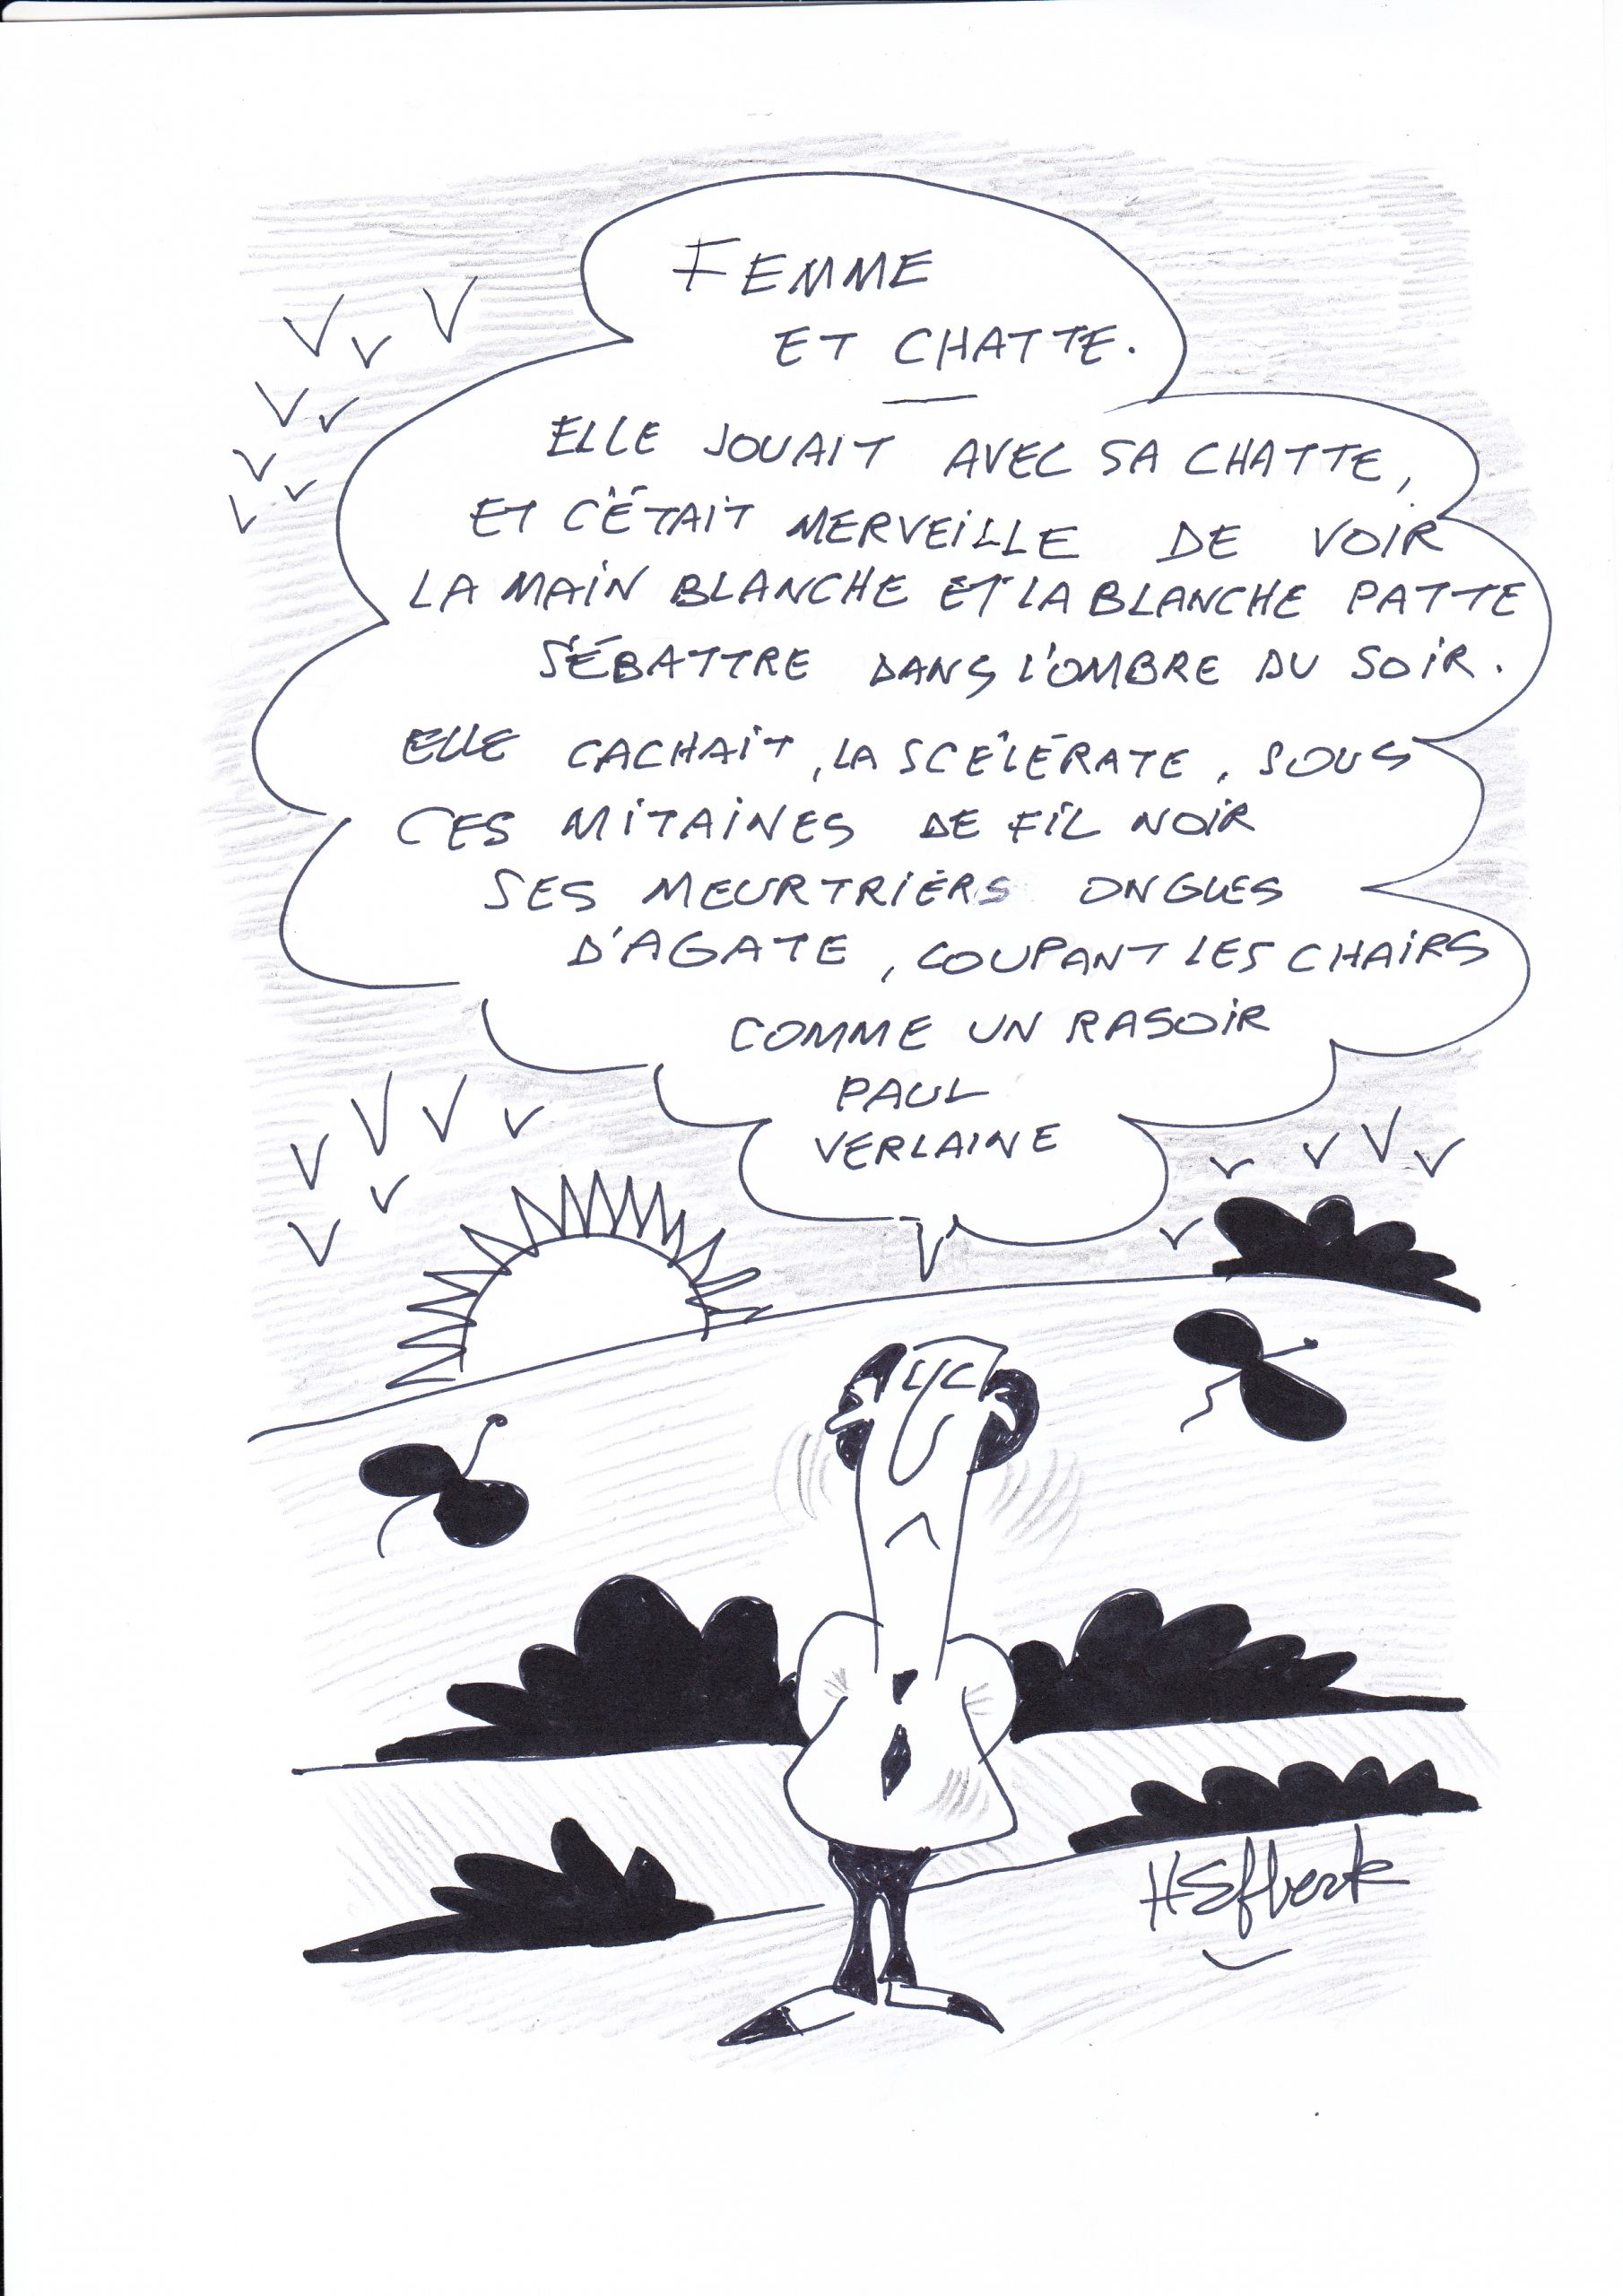 FEMME
ET CHATTE.
ELLE JOUAIT AVEC SA CHATTE,
ET C'ÉTAIT MERVEILLE DE VOIR
LA MAIN BLANCHE ET LA BLANCHE PATTE
S'ÉBATTRE DANS L'OMBRE DU SOIR.
ELLE CACHAIT, LA SCÉLÉRATE, SOUS
CES MITAINES DE FIL NOIR
SES MEURTRIERS ONGLES
D'AGATE, COUPANT LES CHAIRS
COMME UN RASOIR
PAUL
VERLAINE